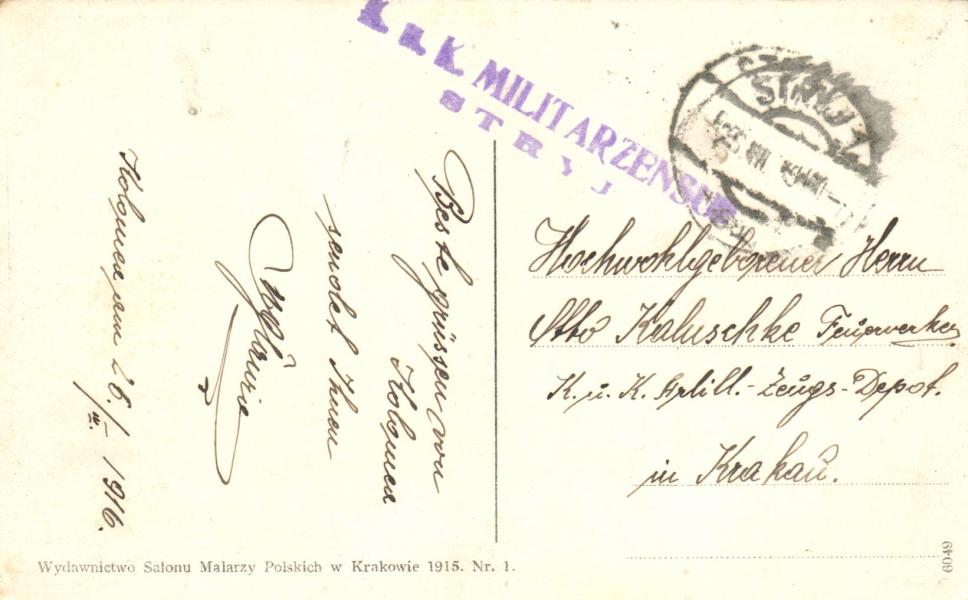 K. u. K. MILITÄRZENSUR
STRYJ
STRYJ
Beste grüssen von
Kolomea
sendet Ihnen
Kolomea am 26./III. 1916.
Hochwohlgeborener Herrn
Otto Kaluschke Feuerwerker
K. u. K. Artill.-Zeugs-Depot.
in Krakau.
Wydawnictwo Salonu Malarzy Polskich w Krakowie 1915. Nr. 1.
6049